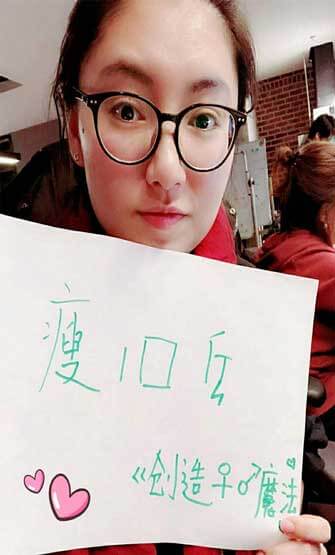 瘦10斤
《创造♀♂魔法